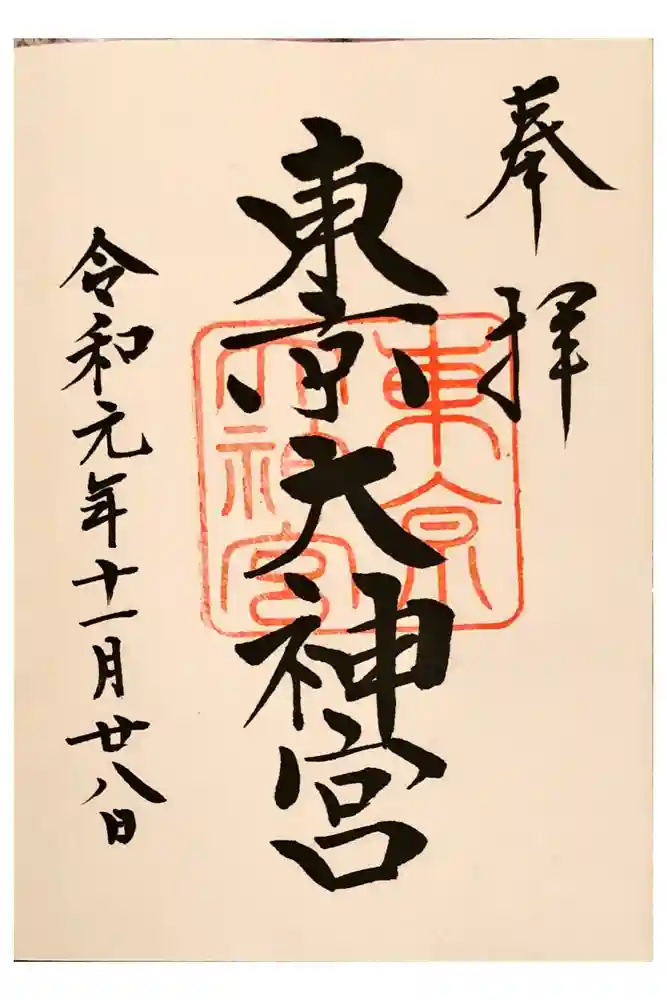 奉拝
東京大神宮
東京
大神宮
令和元年十一月廿八日